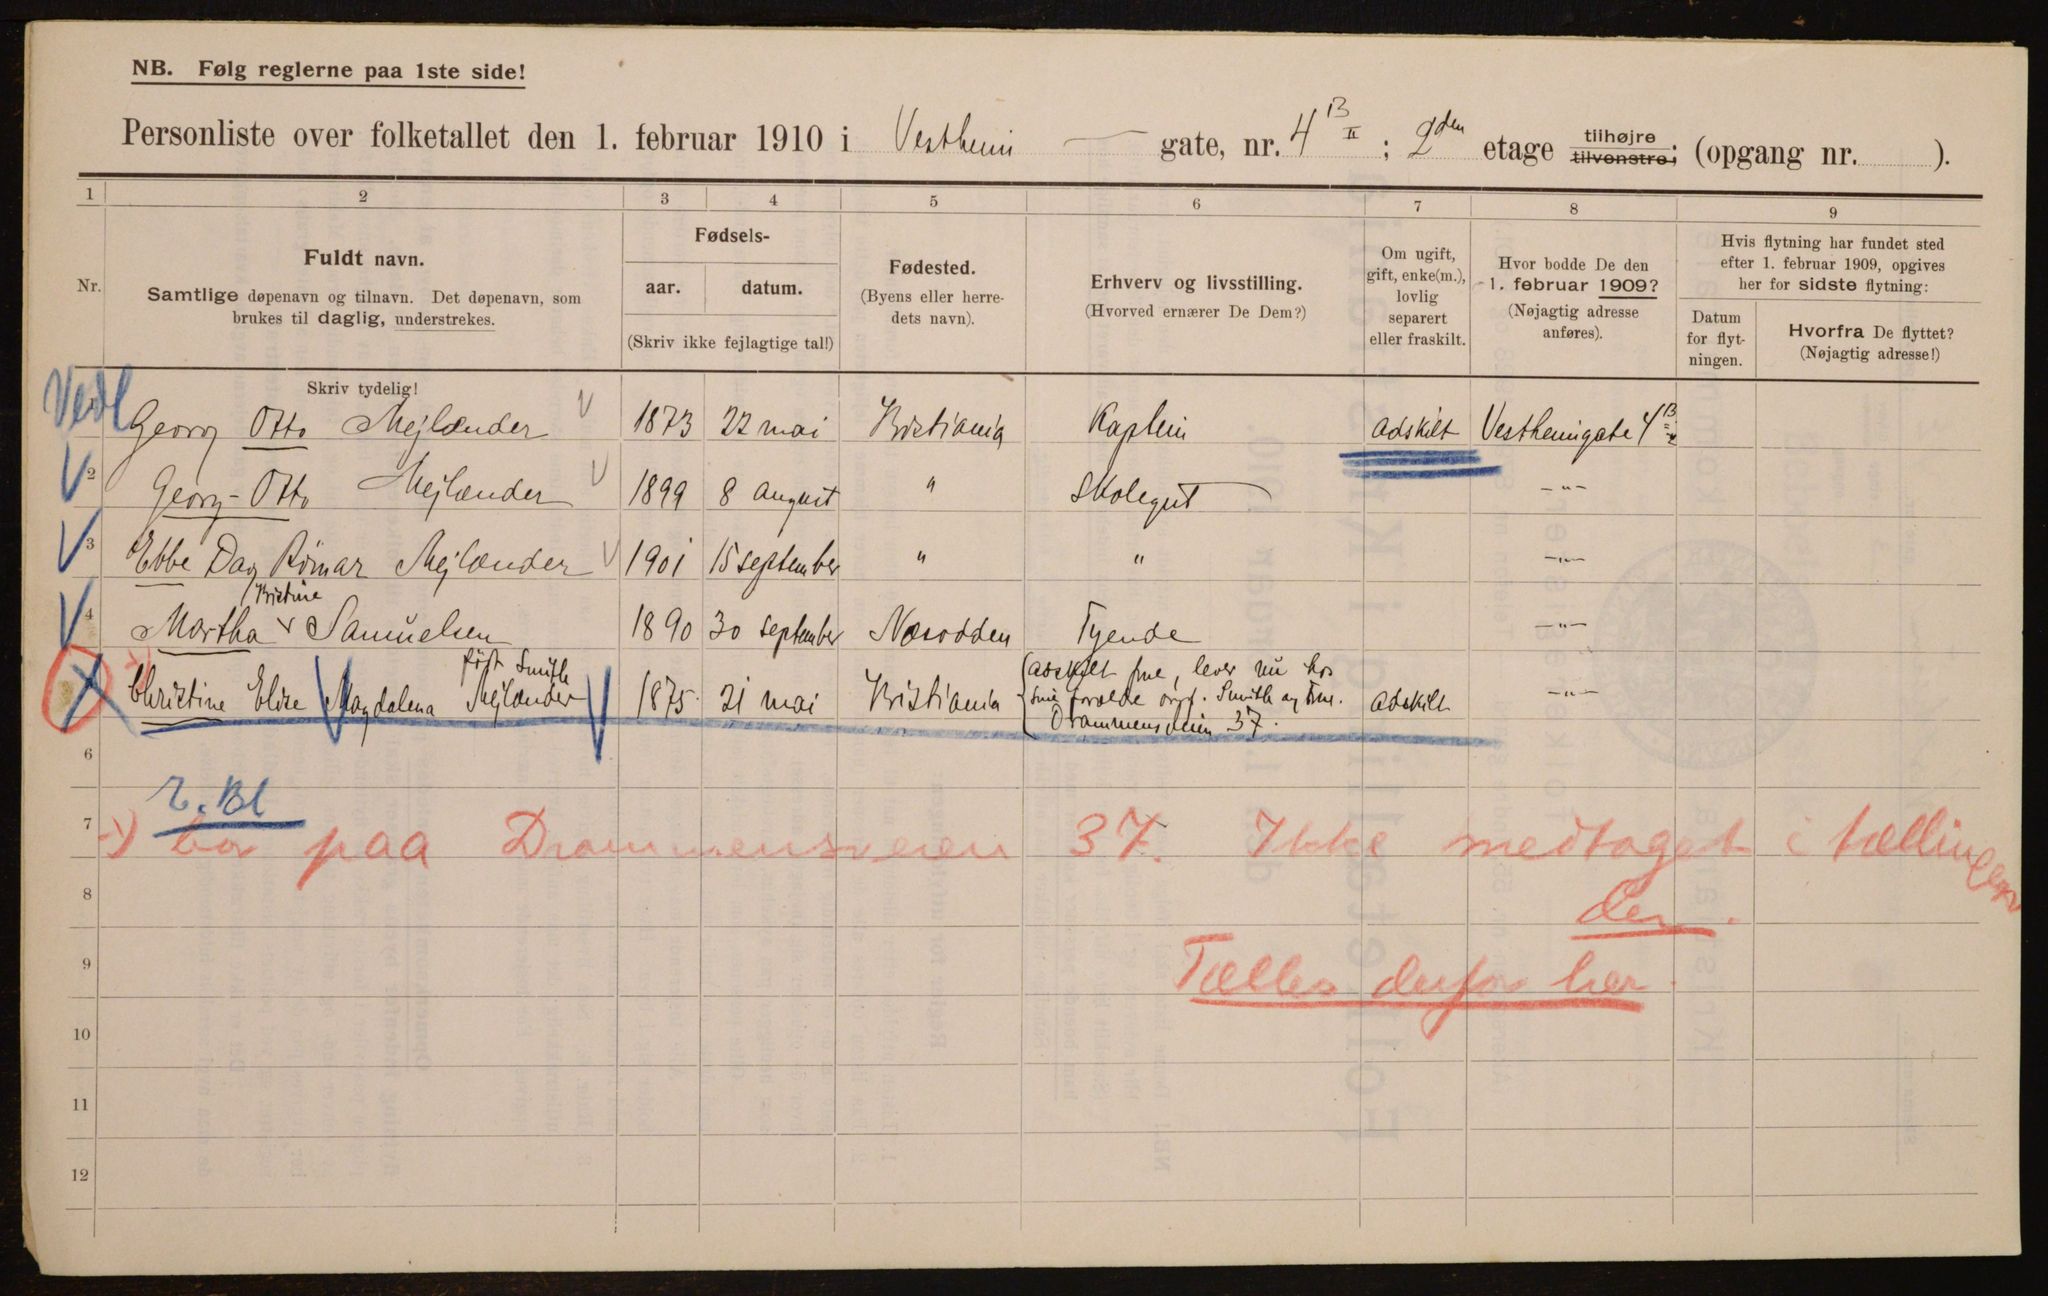 NB. Følg reglerne paa 1ste side!
Personliste over folketallet den 1. februar 1910 i Vestheim gate, nr. 4 B II ; 2den etage tilhøjre tilvenstre; (opgang nr. ).
1 2 3 4 5 6 7 8 9
Nr.
Fuldt navn.
Samtlige døpenavn og tilnavn. Det døpenavn, som
brukes til daglig, understrekes.
Skriv tydelig!
Fødsels-
aar. datum.
(Skriv ikke fejlagtige tal!)
Fødested.
(Byens eller herre-
dets navn).
Erhverv og livsstilling.
(Hvorved ernærer De Dem?)
Om ugift,
gift, enke(m.),
lovlig
separert
eller fraskilt.
Hvor bodde De den
1. februar 1909?
(Nøjagtig adresse
anføres).
Hvis flytning har fundet sted
efter 1. februar 1909, opgives
her for sidste flytning:
Datum
for flyt-
ningen.
Hvorfra De flyttet?
(Nøjagtig adresse!)
Georg Otto Mejlænder 1873 22 mai Kristiania Kaptein adskilt Vestheimgate 4 B
2 Georg-Otto Mejlænder 1899 8 august " Skolegut -"-
3 Ebbe Dag Rømar Mejlænder 1901 15 september " " -"-
Kristine
4 Martha Samuelsen 1890 30 september Næsodden Tyende -"-
født Smith
Christine Elise Magdalena Mejlænder 1875 21 mai Kristiania adskilt frue, lever nu hos adskilt -"-
sine forældre Smith og frue.
Drammensveien 37.
6
7
8
9
10
11
12
bor paa Drammensveien 37. Ikke medtaget i tællingen
der.
Tælles derfor her.